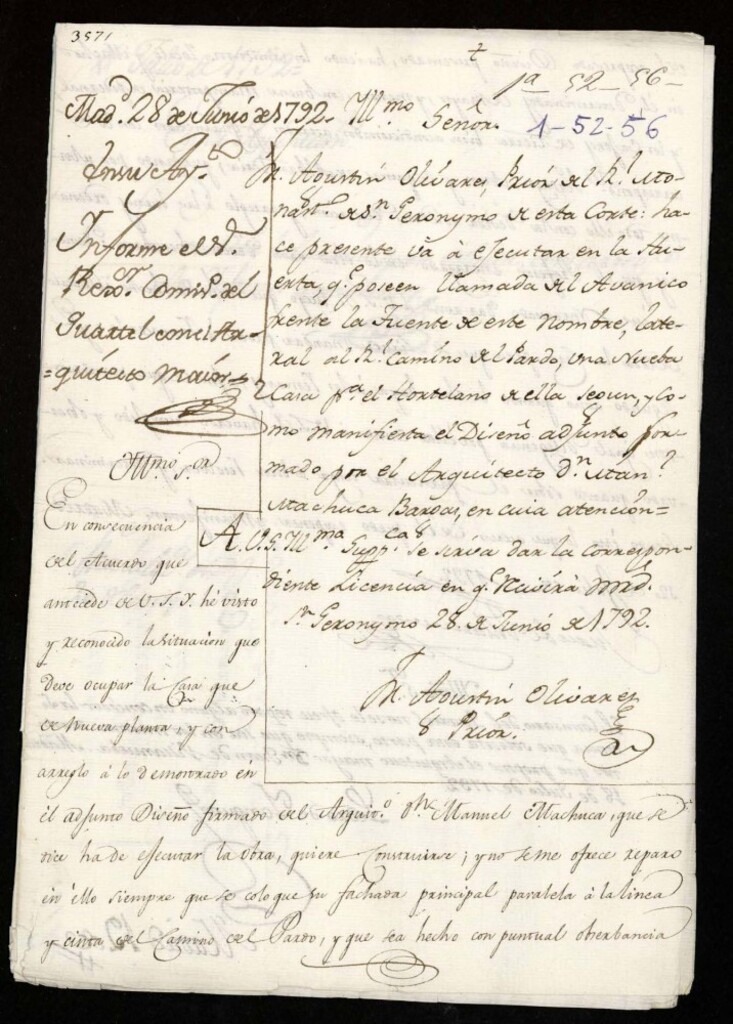 3571
1ª 52-56-
1-52-56
Mad.d 28 de Junio de 1792.
En su Ay.to
Informe el S.r
Rex.or Comis.o del
Quartel con el Ar-
=quitecto maior=
Yll.mo Señor.
Fr. Agustin Olivares, Prior del R.l Mo-
nast.o de Sn Geronymo de esta Corte: ha-
ce presente vá à efecutar en la Hu-
erta, q.e poseen llamada del Avanico
frente la Fuente de este Nombre, late-
ral al R.l Camino del Pardo, una Nueba
Casa pª el Hortelano de ella segun, y co-
mo manifiesta el Diseño adjunto for-
mado por el Arquitecto Dn Man.l
Machuca Bargas, en cuia atencion=
A V.S. Yll.ma Supp.ca se sirva dar la correspon-
diente Licencia en q.e Recivirà mrd.
Sn Geronymo 28 de Junio de 1792.
Fr. Agustin Olivares
Prior.
Yll.mo S.or
En consecuencia
del Acuerdo que
antecede de V.S.Y. hé visto
y reconocido la situacion que
deve ocupar la Casa que
de nueva planta, y con
arreglo á lo demostrado en
el adjunto Diseño firmado del Arquit.o Dn Manuel Machuca, que se
dice ha de efecutar la obra, quiere construirse; y no se me ofrece reparo
en éllo siempre que se coloque su fachada principal paralela á la linea
y cinta del Camino del Pardo, y que sea hecho con puntual obserbancia